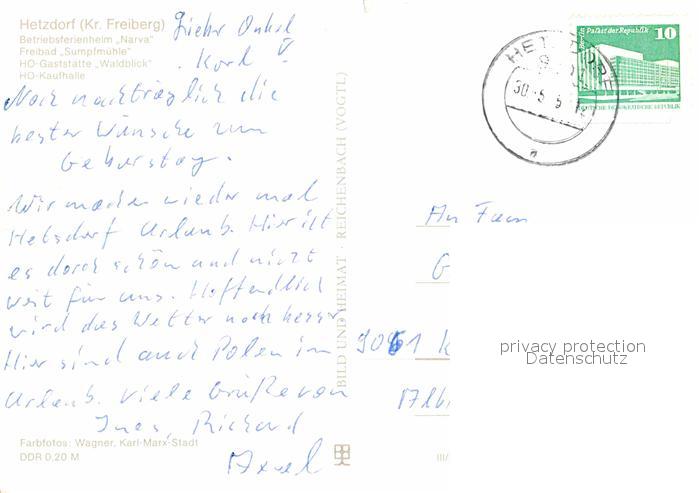 Hetzdorf (Kr. Freiberg)
Betriebsferienheim „Narva"
Freibad „Sumpfmühle"
HO-Gaststätte „Waldblick"
HO-Kaufhalle
Lieber Onkel
Karl
Noch nachträglich die
besten Wünsche zum
Geburtstag.
Wir machen wieder mal
Hetzdorf Urlaub. Hier ist
es doch schön und nicht
weit für uns. Hoffentlich
wird das Wetter noch besser
Hier sind auch Polen im
Urlaub. Viele Grüße von
Ines, Richard
Axel
Farbfotos: Wagner, Karl-Marx-Stadt
DDR 0,20 M
BILD UND HEIMAT · REICHENBACH (VOGTL)
III/
Berlin Palast der Republik
10
DEUTSCHE DEMOKRATISCHE REPUBLIK
HETZDORF
30.-5.
An Fam
G
9051 K
Albr
privacy protection
Datenschutz